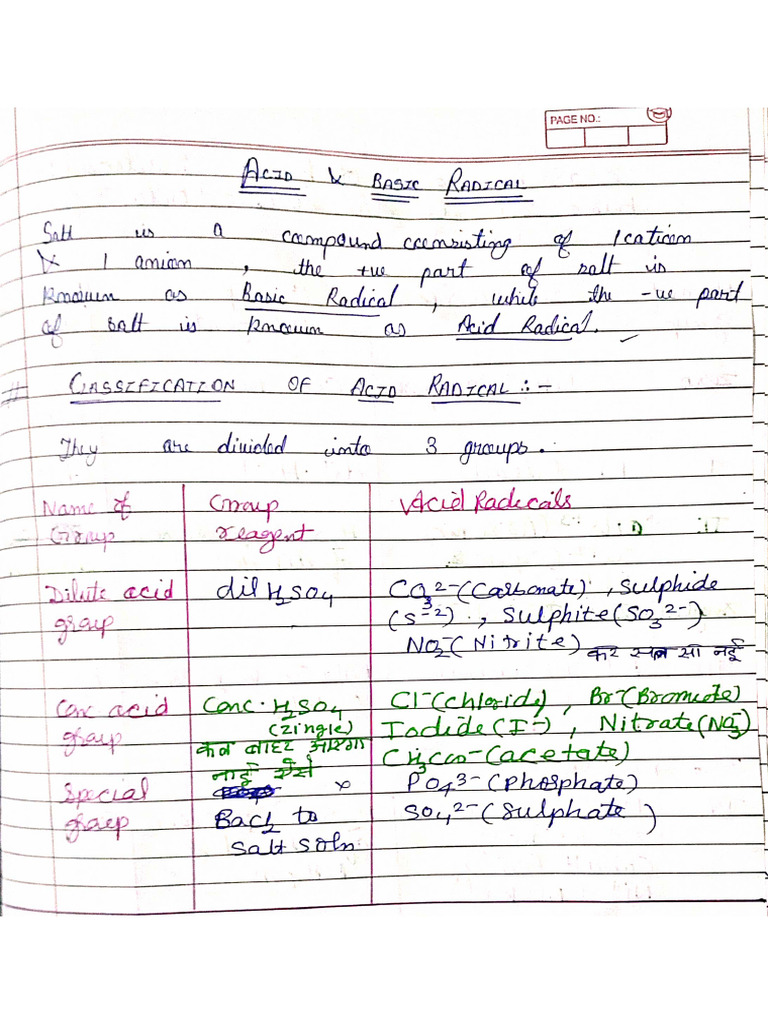 PAGE NO.:
ACID & BASIC RADICAL
Salt is a compound consisting of 1 cation
& 1 anion , the +ve part of salt is
known as Basic Radical , while the -ve part
of salt is known as Acid Radical.
# CLASSIFICATION OF ACID RADICAL :-
They are divided into 3 groups.
Name of Group
Group reagent
Acid Radicals
Dilute acid group
dil H2SO4
CO3 2- (Carbonate) , Sulphide
(S-2) , Sulphite (SO3 2-)
NO2- (Nitrite)
Conc acid group
Conc. H2SO4
(Zingle)
कब बाहर आएगा
नाई
Cl- (chloride) , Br- (Bromide)
Iodide (I-) , Nitrate (NO3-)
CH3COO- (acetate)
Special group
x
BaCl2 to
Salt soln
PO4 3- (Phosphate)
SO4 2- (Sulphate)